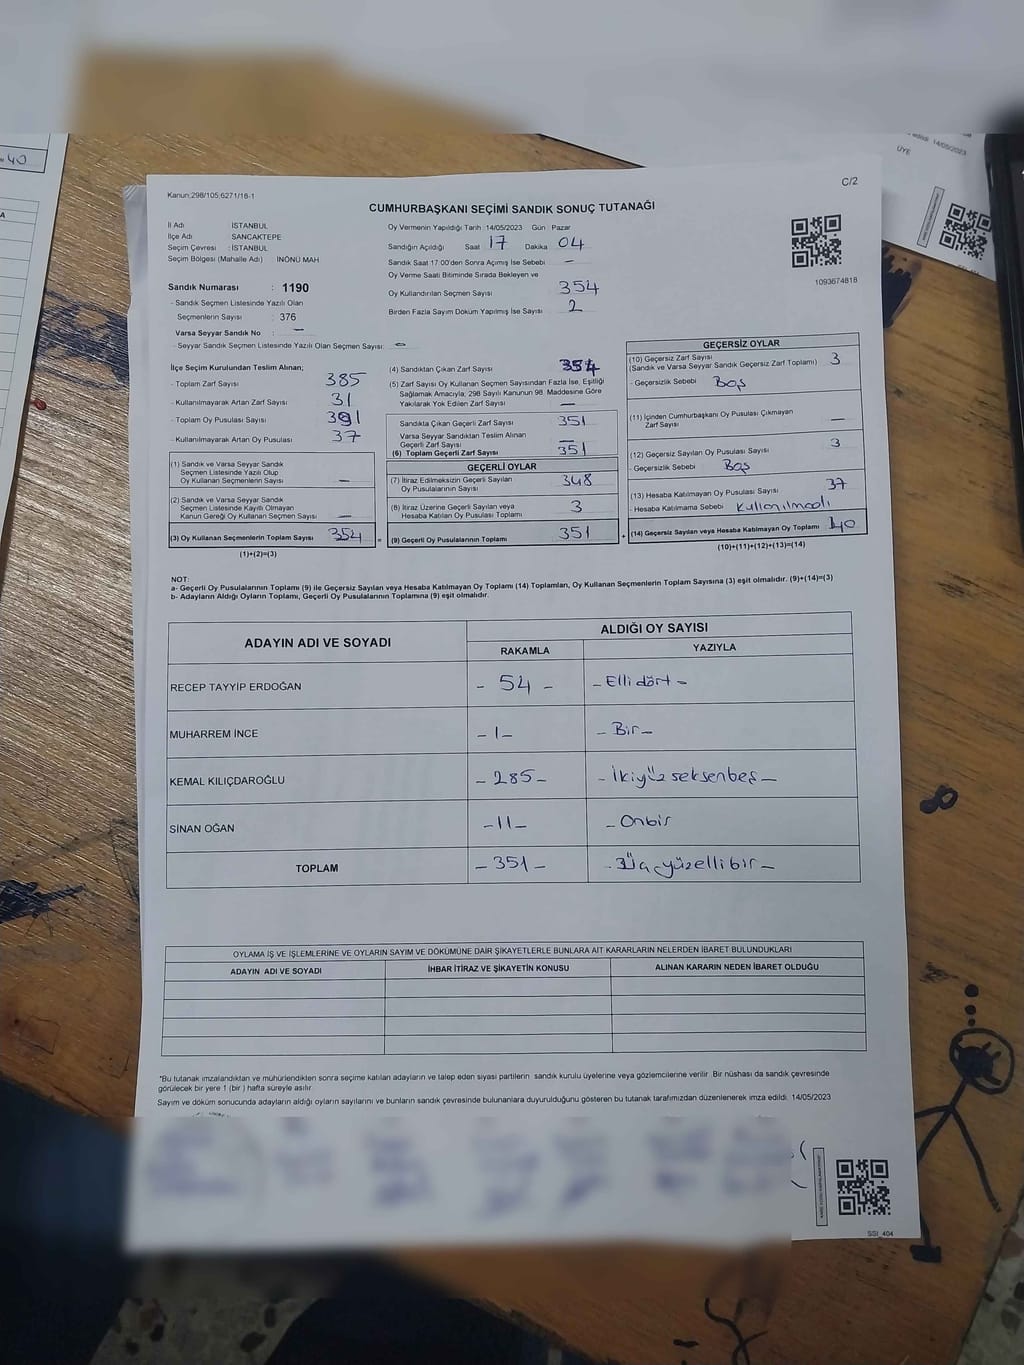 40
A
edildi: 14/05/2023
ÜYE
Kanun:298/105,6271/18-1
C/2
CUMHURBAŞKANI SEÇİMİ SANDIK SONUÇ TUTANAĞI
İl Adı : İSTANBUL
İlçe Adı : SANCAKTEPE
Seçim Çevresi : İSTANBUL
Seçim Bölgesi (Mahalle Adı) : İNÖNÜ MAH
Oy Vermenin Yapıldığı Tarih :14/05/2023 Gün : Pazar
Sandığın Açıldığı Saat 17 Dakika 04
Sandık Saat 17:00'den Sonra Açımış İse Sebebi —
Oy Verme Saati Bitiminde Sırada Bekleyen ve
Oy Kullandırılan Seçmen Sayısı 354
Birden Fazla Sayım Döküm Yapılmış İse Sayısı 2
1093674818
Sandık Numarası : 1190
- Sandık Seçmen Listesinde Yazılı Olan
Seçmenlerin Sayısı : 376
Varsa Seyyar Sandık No : —
- Seyyar Sandık Seçmen Listesinde Yazılı Olan Seçmen Sayısı: —
İlçe Seçim Kurulundan Teslim Alınan;
- Toplam Zarf Sayısı 385
- Kullanılmayarak Artan Zarf Sayısı 31
- Toplam Oy Pusulası Sayısı 391
- Kullanılmayarak Artan Oy Pusulası 37
(1) Sandık ve Varsa Seyyar Sandık
Seçmen Listesinde Yazılı Olup
Oy Kullanan Seçmenlerin Sayısı —
(2) Sandık ve Varsa Seyyar Sandık
Seçmen Listesinde Kayıtlı Olmayan
Kanun Gereği Oy Kullanan Seçmen Sayısı —
(3) Oy Kullanan Seçmenlerin Toplam Sayısı 354 =
(1)+(2)=(3)
(4) Sandıktan Çıkan Zarf Sayısı 354
(5) Zarf Sayısı Oy Kullanan Seçmen Sayısından Fazla İse, Eşitliği
Sağlamak Amacıyla; 298 Sayılı Kanunun 98. Maddesine Göre
Yakılarak Yok Edilen Zarf Sayısı —
Sandıkta Çıkan Geçerli Zarf Sayısı 351
Varsa Seyyar Sandıktan Teslim Alınan
Geçerli Zarf Sayısı —
(6) Toplam Geçerli Zarf Sayısı 351
GEÇERLİ OYLAR
(7) İtiraz Edilmeksizin Geçerli Sayılan
Oy Pusulalarının Sayısı 348
(8) İtiraz Üzerine Geçerli Sayılan veya
Hesaba Katılan Oy Pusulası Toplamı 3
(9) Geçerli Oy Pusulalarının Toplamı 351 +
GEÇERSİZ OYLAR
(10) Geçersiz Zarf Sayısı 3
(Sandık ve Varsa Seyyar Sandık Geçersiz Zarf Toplamı)
- Geçersizlik Sebebi Boş
(11) İçinden Cumhurbaşkanı Oy Pusulası Çıkmayan
Zarf Sayısı —
(12) Geçersiz Sayılan Oy Pusulası Sayısı 3
- Geçersizlik Sebebi Boş
(13) Hesaba Katılmayan Oy Pusulası Sayısı 37
- Hesaba Katılmama Sebebi Kullanılmadı
(14) Geçersiz Sayılan veya Hesaba Katılmayan Oy Toplamı 40
(10)+(11)+(12)+(13)=(14)
NOT:
a- Geçerli Oy Pusulalarının Toplamı (9) ile Geçersiz Sayılan veya Hesaba Katılmayan Oy Toplamı (14) Toplamları, Oy Kullanan Seçmenlerin Toplam Sayısına (3) eşit olmalıdır. (9)+(14)=(3)
b- Adayların Aldığı Oyların Toplamı, Geçerli Oy Pusulalarının Toplamına (9) eşit olmalıdır.
ADAYIN ADI VE SOYADI
ALDIĞI OY SAYISI
RAKAMLA YAZIYLA
RECEP TAYYİP ERDOĞAN - 54 - - Elli dört -
MUHARREM İNCE - 1 - - Bir -
KEMAL KILIÇDAROĞLU - 285 - - İkiyüz seksenbeş -
SİNAN OĞAN - 11 - - Onbir
TOPLAM - 351 - - Üçyüzellibir -
OYLAMA İŞ VE İŞLEMLERİNE VE OYLARIN SAYIM VE DÖKÜMÜNE DAİR ŞİKAYETLERLE BUNLARA AİT KARARLARIN NELERDEN İBARET BULUNDUKLARI
ADAYIN ADI VE SOYADI İHBAR İTİRAZ VE ŞİKAYETİN KONUSU ALINAN KARARIN NEDEN İBARET OLDUĞU
*Bu tutanak imzalandıktan ve mühürlendikten sonra seçime katılan adayların ve talep eden siyasi partilerin sandık kurulu üyelerine veya gözlemcilerine verilir. Bir nüshası da sandık çevresinde
görülecek bir yere 1 (bir ) hafta süreyle asılır.
Sayım ve döküm sonucunda adayların aldığı oyların sayılarını ve bunların sandık çevresinde bulunanlara duyurulduğunu gösteren bu tutanak tarafımızdan düzenlenerek imza edildi. 14/05/2023
SSI_404